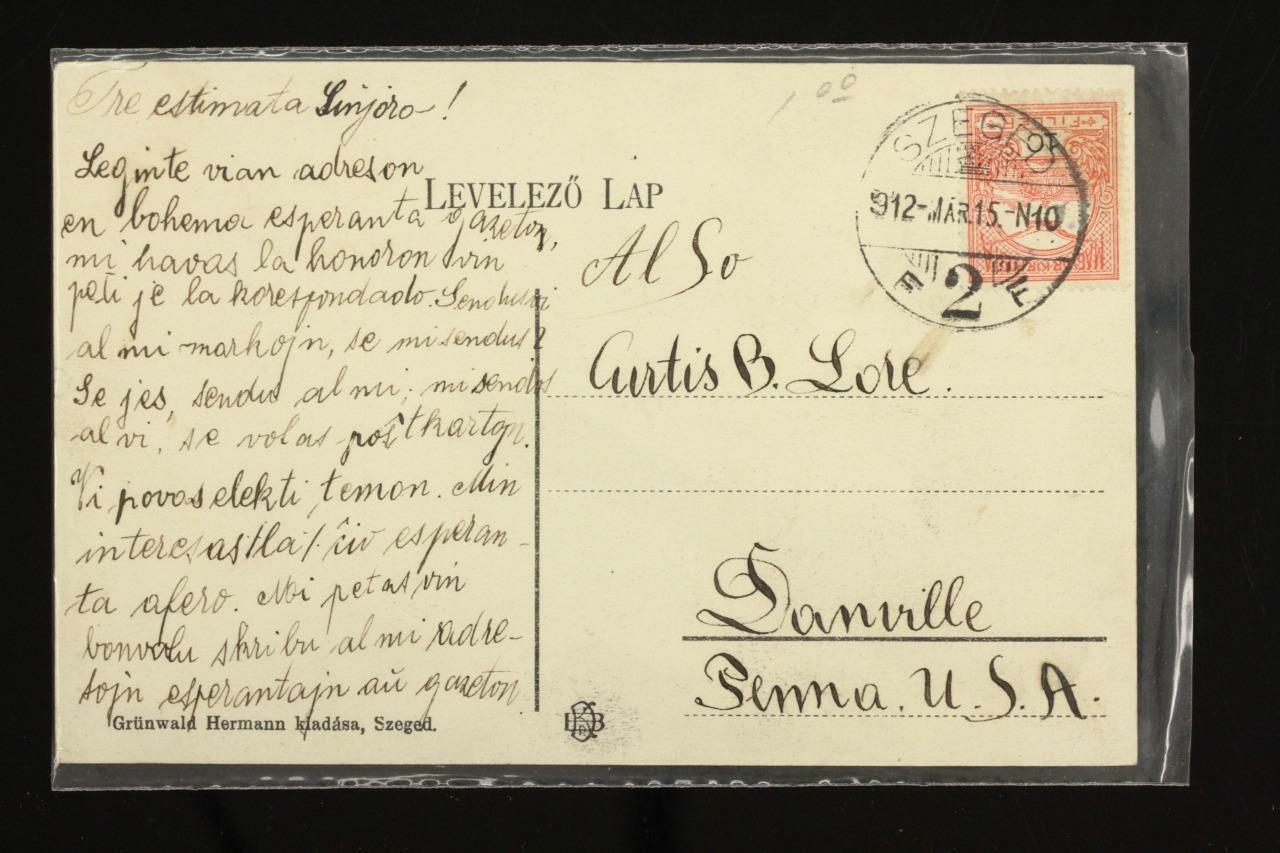 Tre estimata Sinjoro!
Leginte vian adreson
en bohema esperanta gazeton,
mi havas la honoron vin
peti je la korespondado. Sendus vi
al mi markojn, se mi sendus?
Se jes, sendu al mi; mi sendos
al vi, se volas poŝtkartojn.
Vi povas elekti temon. Min
interesas /la/ ĉiv esperan-
ta afero. Mi petas vin
bonvolu skribu al mi adre-
sojn esperantajn aŭ gazeton
Grünwald Hermann kiadása, Szeged.
1 00
LEVELEZŐ LAP
SZEGED
912-MÁR.15.-N10
2
Al So
Curtis B. Lore.
Danville
Penna. U.S.A.